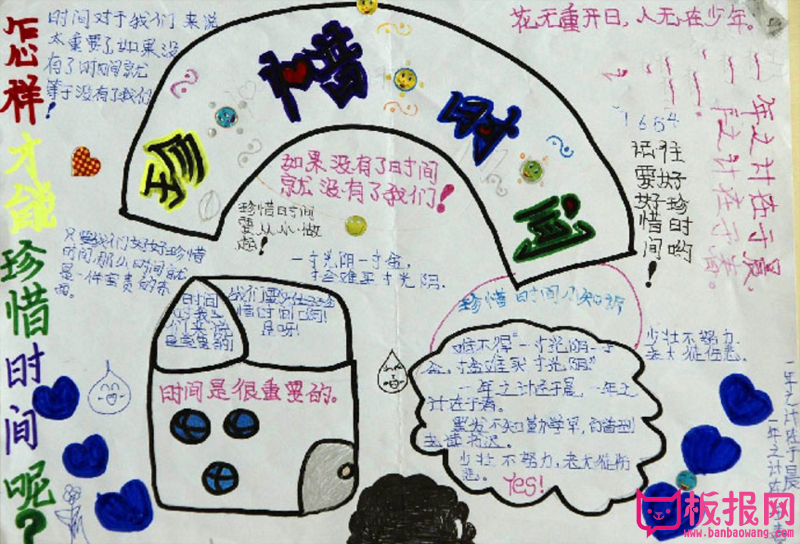 怎样才能珍惜时间呢?
时间对于我们来说
太重要了如果没
有了时间就
等于没有了我们!
珍惜时间
花无重开日,人无在少年。
一年之计在于春
一日之计在于晨
1684
往好珍时哟
记要好惜间!
如果没有了时间
就没有了我们!
珍惜时间
要从小做
起!
一寸光阴一寸金,
寸金难买寸光阴.
只要我们好好珍惜
时间,那么时间就
是一件宝贵的东
西。
时间
对我
们来说
是宝贵的
我们要好好珍
惜时间哟!
是呀!
时间是很重要的。
珍惜时间小知识
难不得"一寸光阴一寸
金,寸金难买寸光阴"
一年之计在于晨,一年之
计在于春。
黑发不知勤学早,白首方
悔读书迟。
少壮不努力,老大徒伤
悲。
Yes!
少壮不努力
老大徒伤悲。
一年之计在于晨
一年之计在于春
板报网
www.banbaowang.com